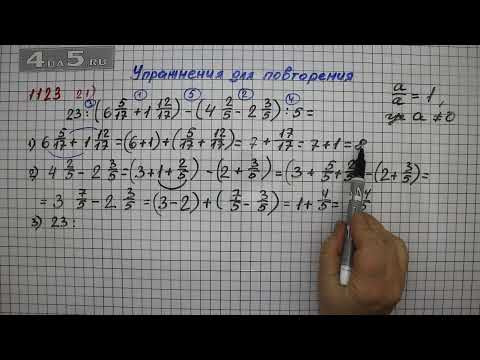 4 U A 5 . R U
Упражнения для повторения
1123 21)
③ ① ⑤ ② ④
23:(6 5/17 + 1 12/17) - (4 2/5 - 2 3/5) : 5 =
a/a = 1,
где a ≠ 0
1) 6 5/17 + 1 12/17 = (6+1) + (5/17 + 12/17) = 7 + 17/17 = 7+1 = 8
2) 4 2/5 - 2 3/5 = (3+1+2/5) - (2+3/5) = (3 + 5/5 + 2/5) - (2+3/5) =
= 3 7/5 - 2 3/5 = (3-2) + (7/5 - 3/5) = 1 + 4/5 = 4/5
3) 23 :